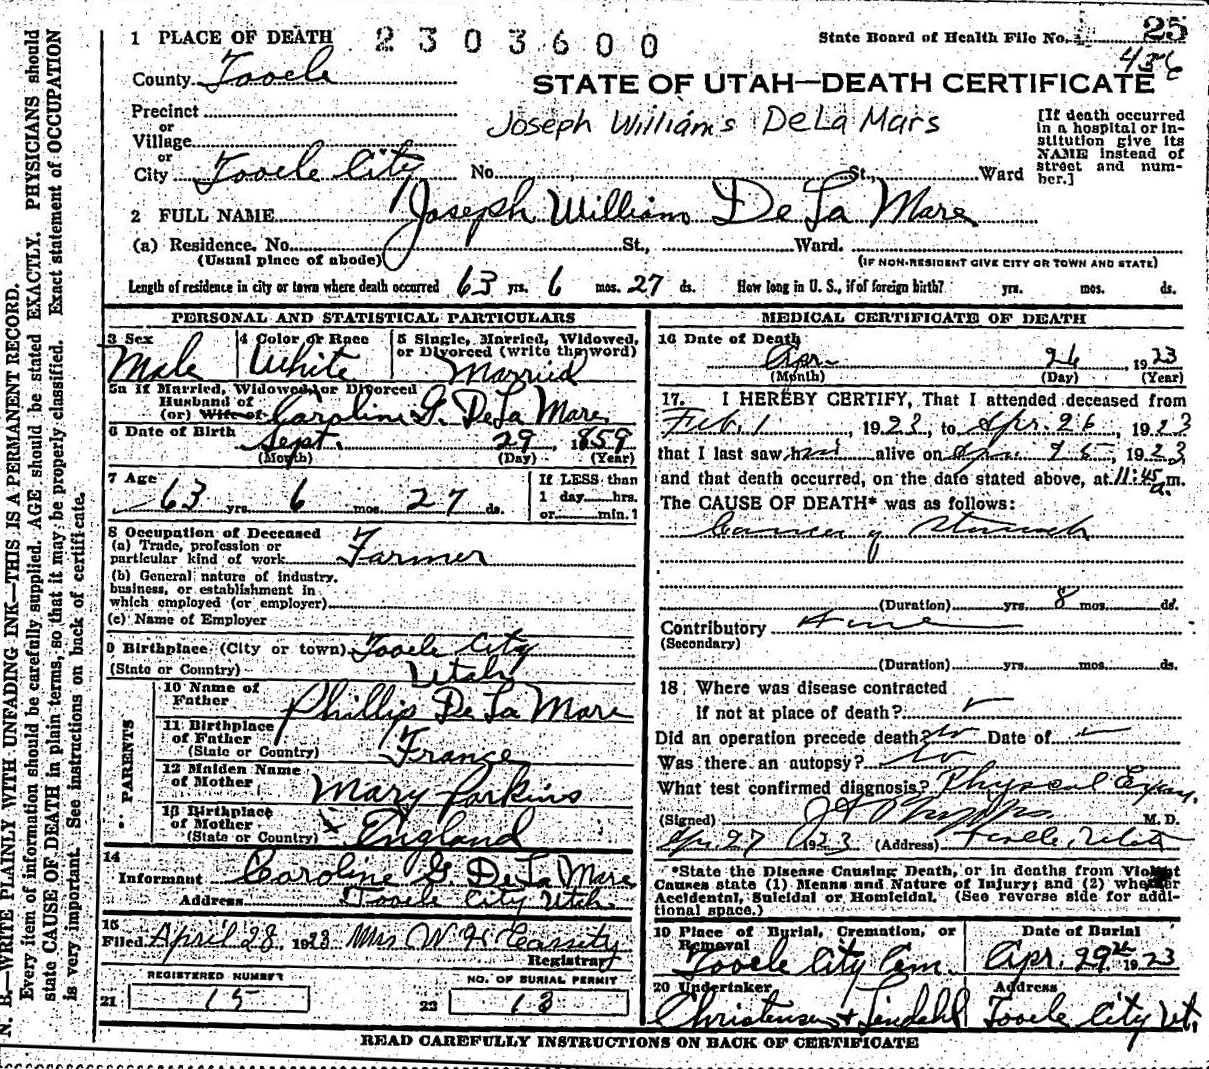 1 PLACE OF DEATH 2303600 State Board of Health File No. 25
436
County Tooele
STATE OF UTAH—DEATH CERTIFICATE
Precinct
or
Village
or
City Tooele City No. St., Ward
Joseph Williams DeLa Mars
[If death occurred
in a hospital or in-
stitution give its
NAME instead of
street and num-
ber.]
2 FULL NAME Joseph William De La Mare
(a) Residence. No. St., Ward.
(Usual place of abode) (IF NON-RESIDENT GIVE CITY OR TOWN AND STATE)
Length of residence in city or town where death occurred 63 yrs. 6 mos. 27 ds. How long in U. S., if of foreign birth? yrs. mos. ds.
PERSONAL AND STATISTICAL PARTICULARS
3 Sex 4 Color or Race 5 Single, Married, Widowed,
or Divorced (write the word)
Male White Married
5a If Married, Widowed, or Divorced
Husband of
(or) Wife of Caroline G. De La Mare
6 Date of Birth Sept. 29 1859
(Month) (Day) (Year)
7 Age 63 yrs. 6 mos. 27 ds.
If LESS than
1 day hrs.
or min.?
8 Occupation of Deceased
(a) Trade, profession or
particular kind of work Farmer
(b) General nature of industry,
business, or establishment in
which employed (or employer)
(c) Name of Employer
9 Birthplace (City or town) Tooele City
(State or Country) Utah
PARENTS
10 Name of
Father Phillip De La Mare
11 Birthplace
of Father
(State or Country) France
12 Maiden Name
of Mother Mary Parkins
13 Birthplace
of Mother
(State or Country) England
14
Informant Caroline G De La Mare
Address Tooele City Utah
15
Filed April 28, 1923 Mrs W H Cassity
Registrar
REGISTERED NUMBER NO. OF BURIAL PERMIT
21 15 22 13
MEDICAL CERTIFICATE OF DEATH
16 Date of Death
Apr. 26 1923
(Month) (Day) (Year)
17. I HEREBY CERTIFY, That I attended deceased from
Feb. 1, 1923, to Apr. 26, 1923
that I last saw him alive on Apr. 25, 1923
and that death occurred, on the date stated above, at 11:45 a.m.
The CAUSE OF DEATH* was as follows:
Cancer of Stomach
(Duration) yrs. 8 mos. ds.
Contributory
(Secondary)
(Duration) yrs. mos. ds.
18 Where was disease contracted
if not at place of death?
Did an operation precede death? No Date of
Was there an autopsy? No
What test confirmed diagnosis? Physical Exam.
(Signed) M. D.
Apr. 27 1923 (Address) Tooele, Utah
*State the Disease Causing Death, or in deaths from Violent
Causes state (1) Means and Nature of Injury; and (2) whether
Accidental, Suicidal or Homicidal. (See reverse side for addi-
tional space.)
19 Place of Burial, Cremation, or
Removal
Date of Burial
Tooele City Cem. Apr. 29th 1923
20 Undertaker Address
Christensen & Lindahl Tooele City Ut.
READ CAREFULLY INSTRUCTIONS ON BACK OF CERTIFICATE
N. B.—WRITE PLAINLY WITH UNFADING INK—THIS IS A PERMANENT RECORD.
Every item of information should be carefully supplied. AGE should be stated EXACTLY. PHYSICIANS should
state CAUSE OF DEATH in plain terms, so that it may be properly classified. Exact statement of OCCUPATION
is very important. See instructions on back of certificate.